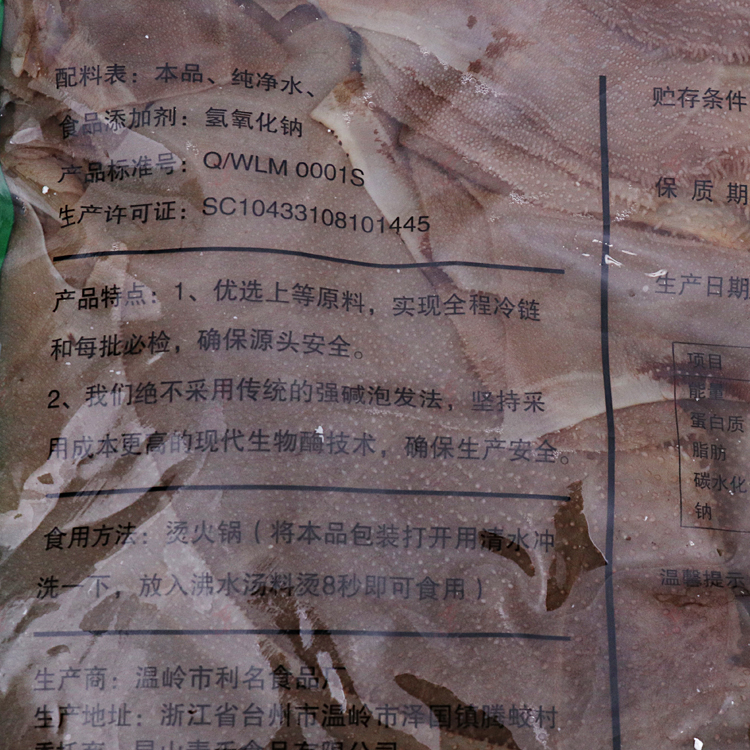 配料表：本品、纯净水、
食品添加剂：氢氧化钠
产品标准号：Q/WLM 0001S
生产许可证：SC10433108101445
产品特点：1、优选上等原料，实现全程冷链
和每批必检，确保源头安全。
2、我们绝不采用传统的强碱泡发法，坚持采
用成本更高的现代生物酶技术，确保生产安全。
食用方法：烫火锅（将本品包装打开用清水冲
洗一下，放入沸水汤料烫8秒即可食用）
生产商：温岭市利名食品厂
生产地址：浙江省台州市温岭市泽国镇腾蛟村
贮存条件
保质期
生产日期
项目
能量
蛋白质
脂肪
碳水化
钠
温馨提示